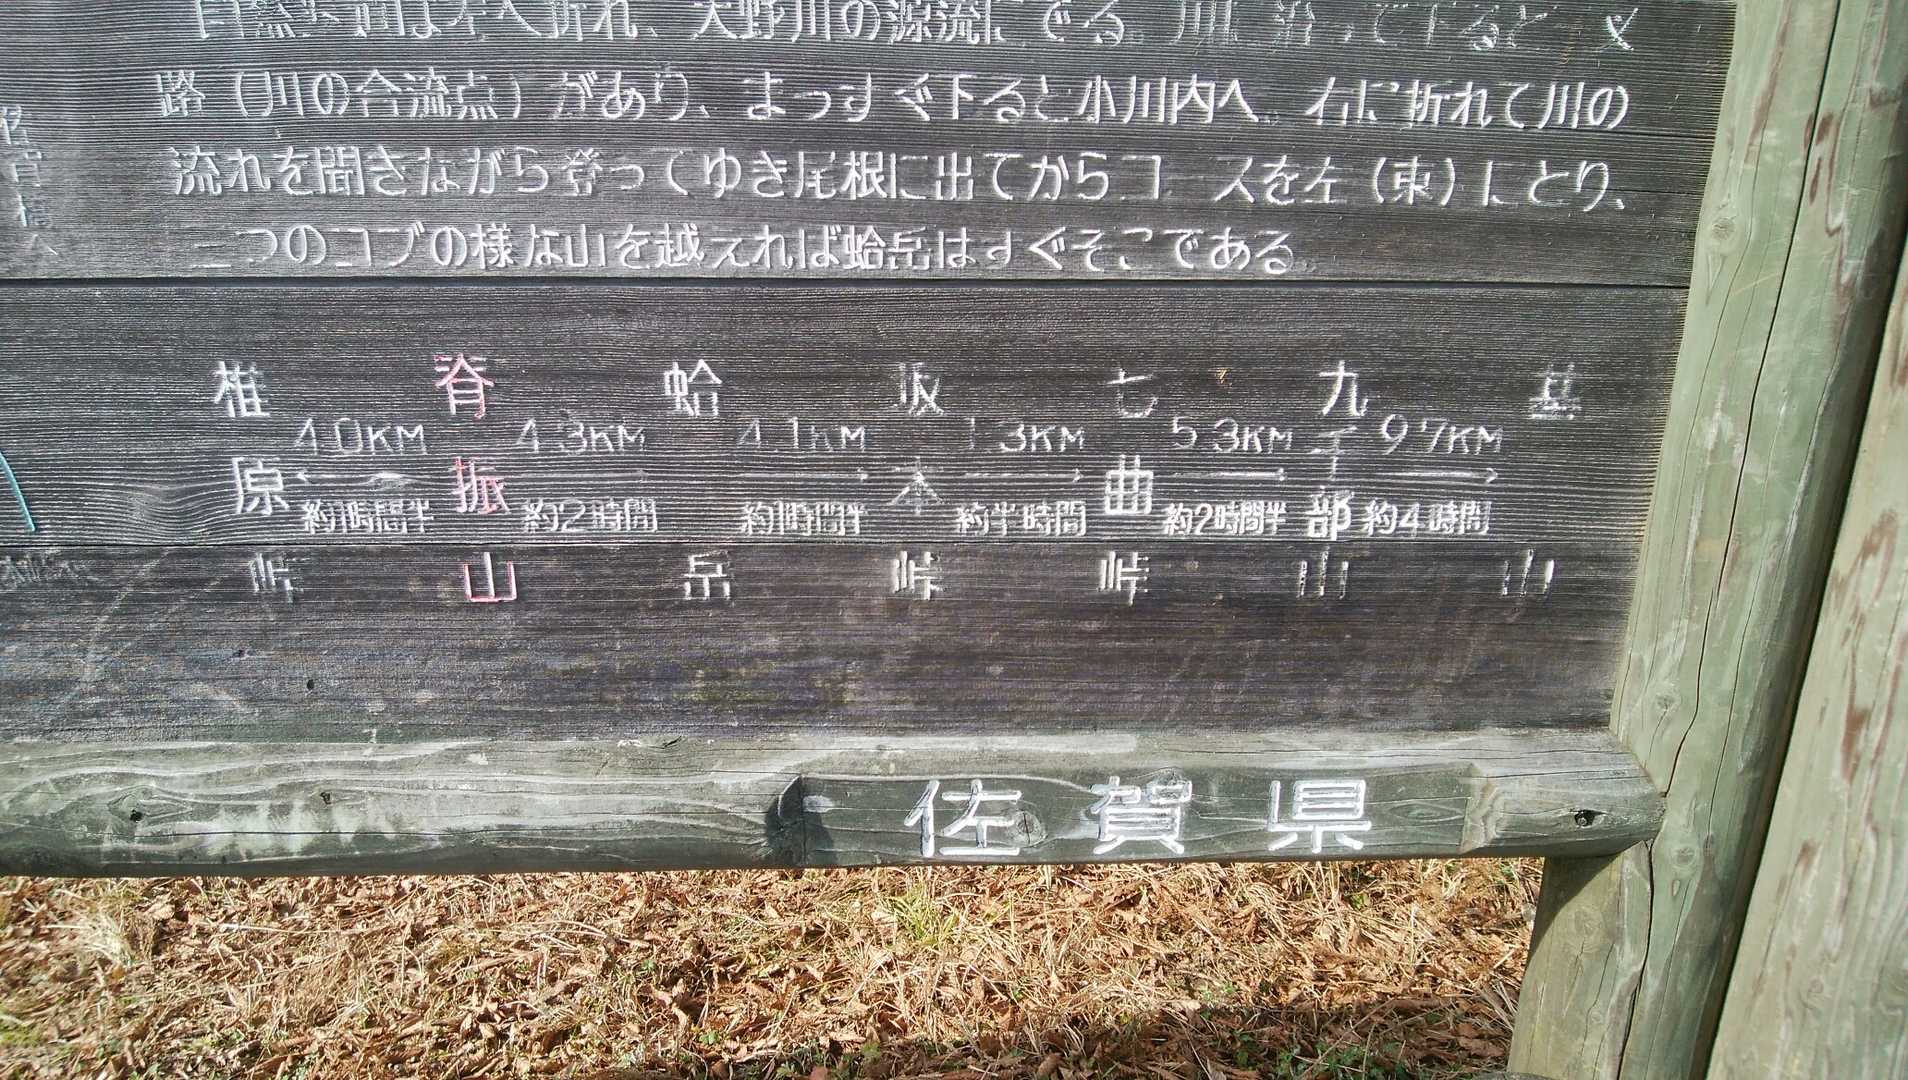 自然歩道は左へ折れ、大野川の源流にでる。川に沿って下ると二又
路（川の合流点）があり、まっすぐ下ると小川内へ。右に折れて川の
流れを聞きながら登ってゆき尾根に出てからコースを左（東）にとり、
二つのコブの様な山を越えれば蛤岳はすぐそこである。
椎原峠
4.0KM
約1時間半
脊振山
4.3KM
約2時間
蛤岳
4.1KM
約1時間半
坂本峠
1.3KM
約半時間
七曲峠
5.3KM
約2時間半
九千部山
9.7KM
約4時間
基山
佐賀県